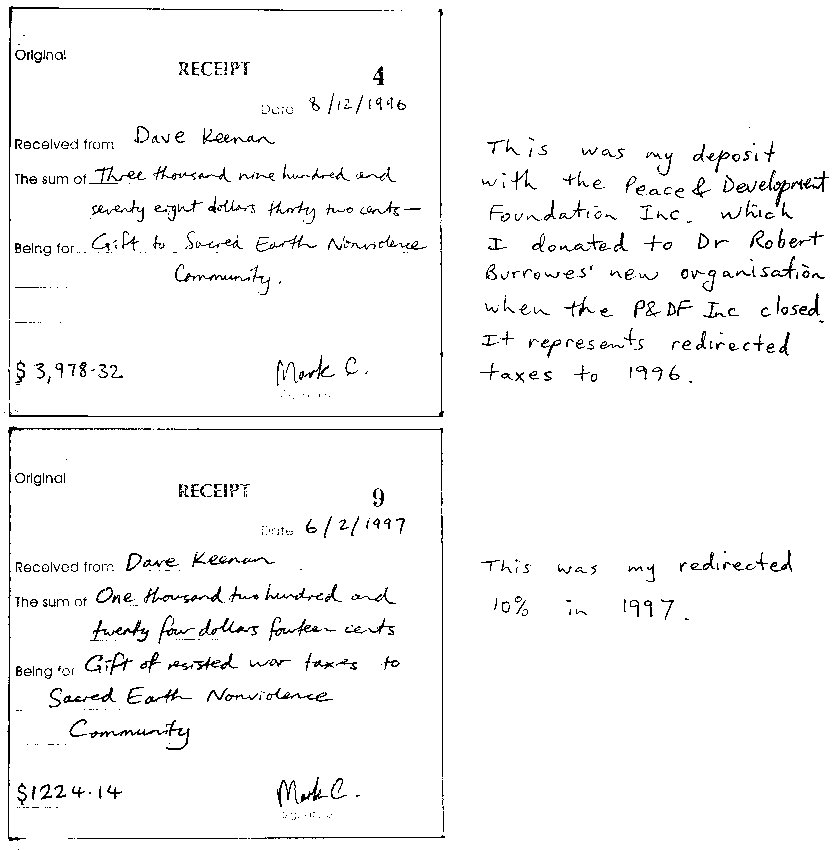 Original
RECEIPT
4
Date 8/12/1996
Received from Dave Keenan
The sum of Three thousand nine hundred and
seventy eight dollars thirty two cents —
Being for Gift to Sacred Earth Nonviolence
Community.
$ 3,978-32
Mark C.
This was my deposit
with the Peace & Development
Foundation Inc. which
I donated to Dr Robert
Burrowes' new organisation
when the P&DF Inc closed.
It represents redirected
taxes to 1996.
Original
RECEIPT
9
Date 6/2/1997
Received from Dave Keenan
The sum of One thousand two hundred and
twenty four dollars fourteen cents
Being for Gift of resisted war taxes to
Sacred Earth Nonviolence
Community
$1224.14
Mark C.
This was my redirected
10% in 1997.